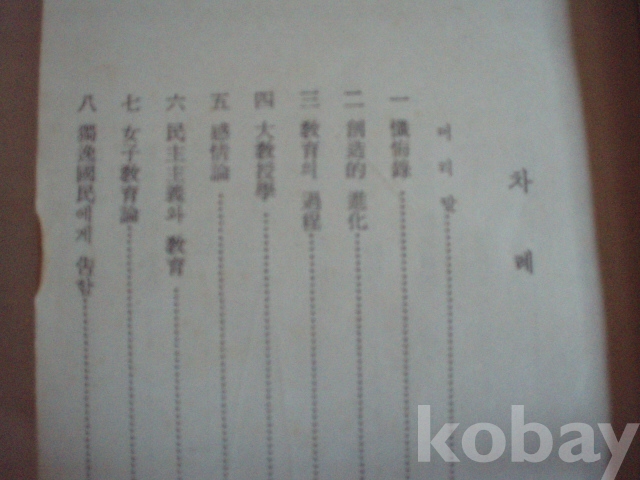 차례
머리말
一 懺悔錄
二 創造的 進化
三 敎育의 過程
四 大敎授學
五 感情論
六 民主主義와 敎育
七 女子敎育論
八 獨逸國民에게 告함
kobay